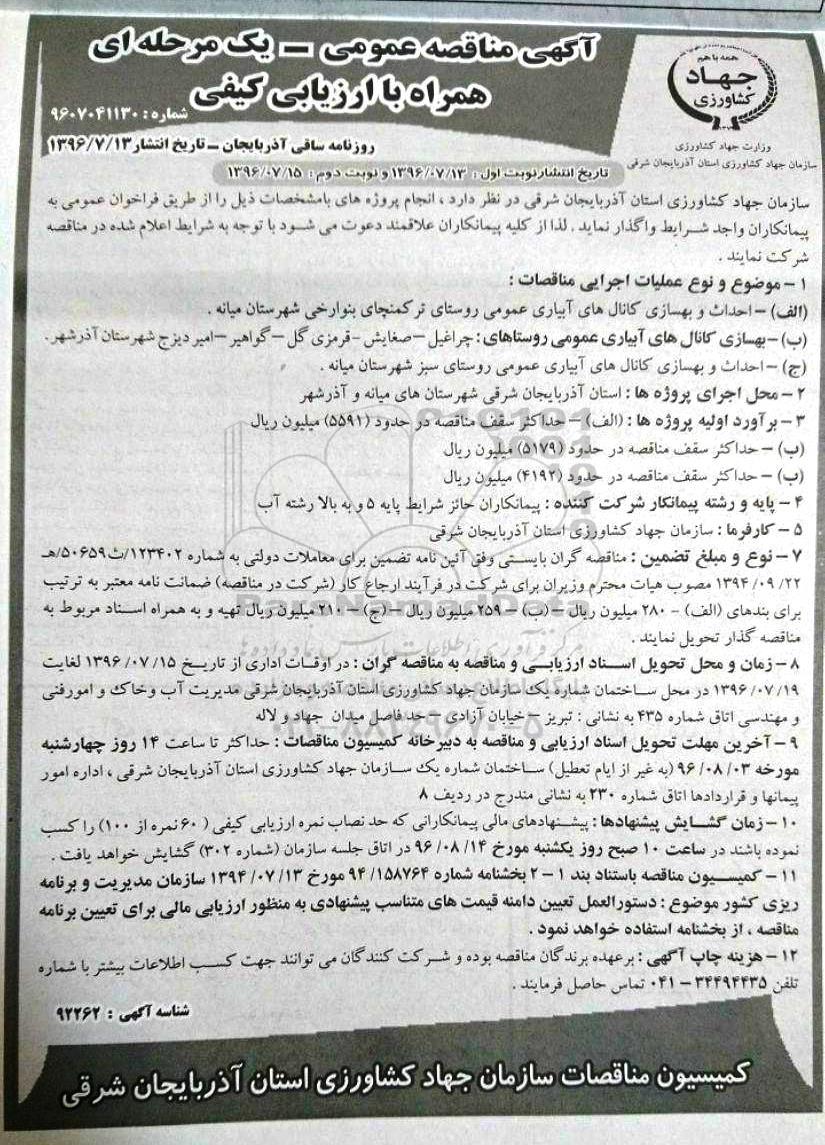 آگهی مناقصه عمومی – یک مرحله ای
همراه با ارزیابی کیفی
شماره : ۹۶۰۷۰۴۱۱۳۰
همه با هم
جهاد
کشاورزی
وزارت جهاد کشاورزی
سازمان جهاد کشاورزی استان آذربایجان شرقی
روزنامه ساقی آذربایجان – تاریخ انتشار ۱۳۹۶/۷/۱۳
تاریخ انتشار نوبت اول : ۱۳۹۶/۰۷/۱۳ و نوبت دوم : ۱۳۹۶/۰۷/۱۵
سازمان جهاد کشاورزی استان آذربایجان شرقی در نظر دارد ، انجام پروژه های بامشخصات ذیل را از طریق فراخوان عمومی به
پیمانکاران واجد شرایط واگذار نماید . لذا از کلیه پیمانکاران علاقمند دعوت می شود با توجه به شرایط اعلام شده در مناقصه
شرکت نمایند .
۱ – موضوع و نوع عملیات اجرایی مناقصات :
(الف) – احداث و بهسازی کانال های آبیاری عمومی روستای ترکمنچای بنوارخی شهرستان میانه .
(ب) – بهسازی کانال های آبیاری عمومی روستاهای : چراغیل – صغایش – قرمزی گل – گواهیر – امیر دیزج شهرستان آذرشهر .
(ج) – احداث و بهسازی کانال های آبیاری عمومی روستای سبز شهرستان میانه .
۲ – محل اجرای پروژه ها : استان آذربایجان شرقی شهرستان های میانه و آذرشهر
۳ – برآورد اولیه پروژه ها : (الف) – حداکثر سقف مناقصه در حدود (۵۵۹۱) میلیون ریال
(ب) – حداکثر سقف مناقصه در حدود (۵۱۷۹) میلیون ریال
(ب) – حداکثر سقف مناقصه در حدود (۴۱۹۲) میلیون ریال
۴ – پایه و رشته پیمانکار شرکت کننده : پیمانکاران حائز شرایط پایه ۵ و به بالا رشته آب
۵ – کارفرما : سازمان جهاد کشاورزی استان آذربایجان شرقی
۷ – نوع و مبلغ تضمین : مناقصه گران بایستی وفق آئین نامه تضمین برای معاملات دولتی به شماره ۱۲۳۴۰۲/ت۵۰۶۵۹/هـ
۱۳۹۴/۰۹/۲۲ مصوب هیات محترم وزیران برای شرکت در فرآیند ارجاع کار (شرکت در مناقصه) ضمانت نامه معتبر به ترتیب
برای بندهای (الف) – ۲۸۰ میلیون ریال – (ب) – ۲۵۹ میلیون ریال – (ج) – ۲۱۰ میلیون ریال تهیه و به همراه اسناد مربوط به
مناقصه گذار تحویل نمایند .
۸ – زمان و محل تحویل اسناد ارزیابی و مناقصه به مناقصه گران : در اوقات اداری از تاریخ ۱۳۹۶/۰۷/۱۵ لغایت
۱۳۹۶/۰۷/۱۹ در محل ساختمان شماره یک سازمان جهاد کشاورزی استان آذربایجان شرقی مدیریت آب وخاک و امورفنی
و مهندسی اتاق شماره ۴۳۵ به نشانی : تبریز – خیابان آزادی – حد فاصل میدان جهاد و لاله
۹ – آخرین مهلت تحویل اسناد ارزیابی و مناقصه به دبیرخانه کمیسیون مناقصات : حداکثر تا ساعت ۱۴ روز چهارشنبه
مورخه ۹۶/۰۸/۰۳ (به غیر از ایام تعطیل) ساختمان شماره یک سازمان جهاد کشاورزی استان آذربایجان شرقی ، اداره امور
پیمانها و قراردادها اتاق شماره ۲۳۰ به نشانی مندرج در ردیف ۸
۱۰ – زمان گشایش پیشنهادها : پیشنهادهای مالی پیمانکارانی که حد نصاب نمره ارزیابی کیفی ( ۶۰ نمره از ۱۰۰) را کسب
نموده باشند در ساعت ۱۰ صبح روز یکشنبه مورخ ۹۶/۰۸/۱۴ در اتاق جلسه سازمان (شماره ۳۰۲) گشایش خواهد یافت .
۱۱ – کمیسیون مناقصه باستناد بند ۱ – ۲ بخشنامه شماره ۹۴/۱۵۸۷۶۴ مورخ ۱۳۹۴/۰۷/۱۳ سازمان مدیریت و برنامه
ریزی کشور موضوع : دستورالعمل تعیین دامنه قیمت های متناسب پیشنهادی به منظور ارزیابی مالی برای تعیین برنامه
مناقصه ، از بخشنامه استفاده خواهد نمود .
۱۲ – هزینه چاپ آگهی : برعهده برندگان مناقصه بوده و شرکت کنندگان می توانند جهت کسب اطلاعات بیشتر با شماره
تلفن ۳۴۴۹۴۴۳۵ – ۰۴۱ تماس حاصل فرمایند .
شناسه آگهی : ۹۲۲۶۲
کمیسیون مناقصات سازمان جهاد کشاورزی استان آذربایجان شرقی